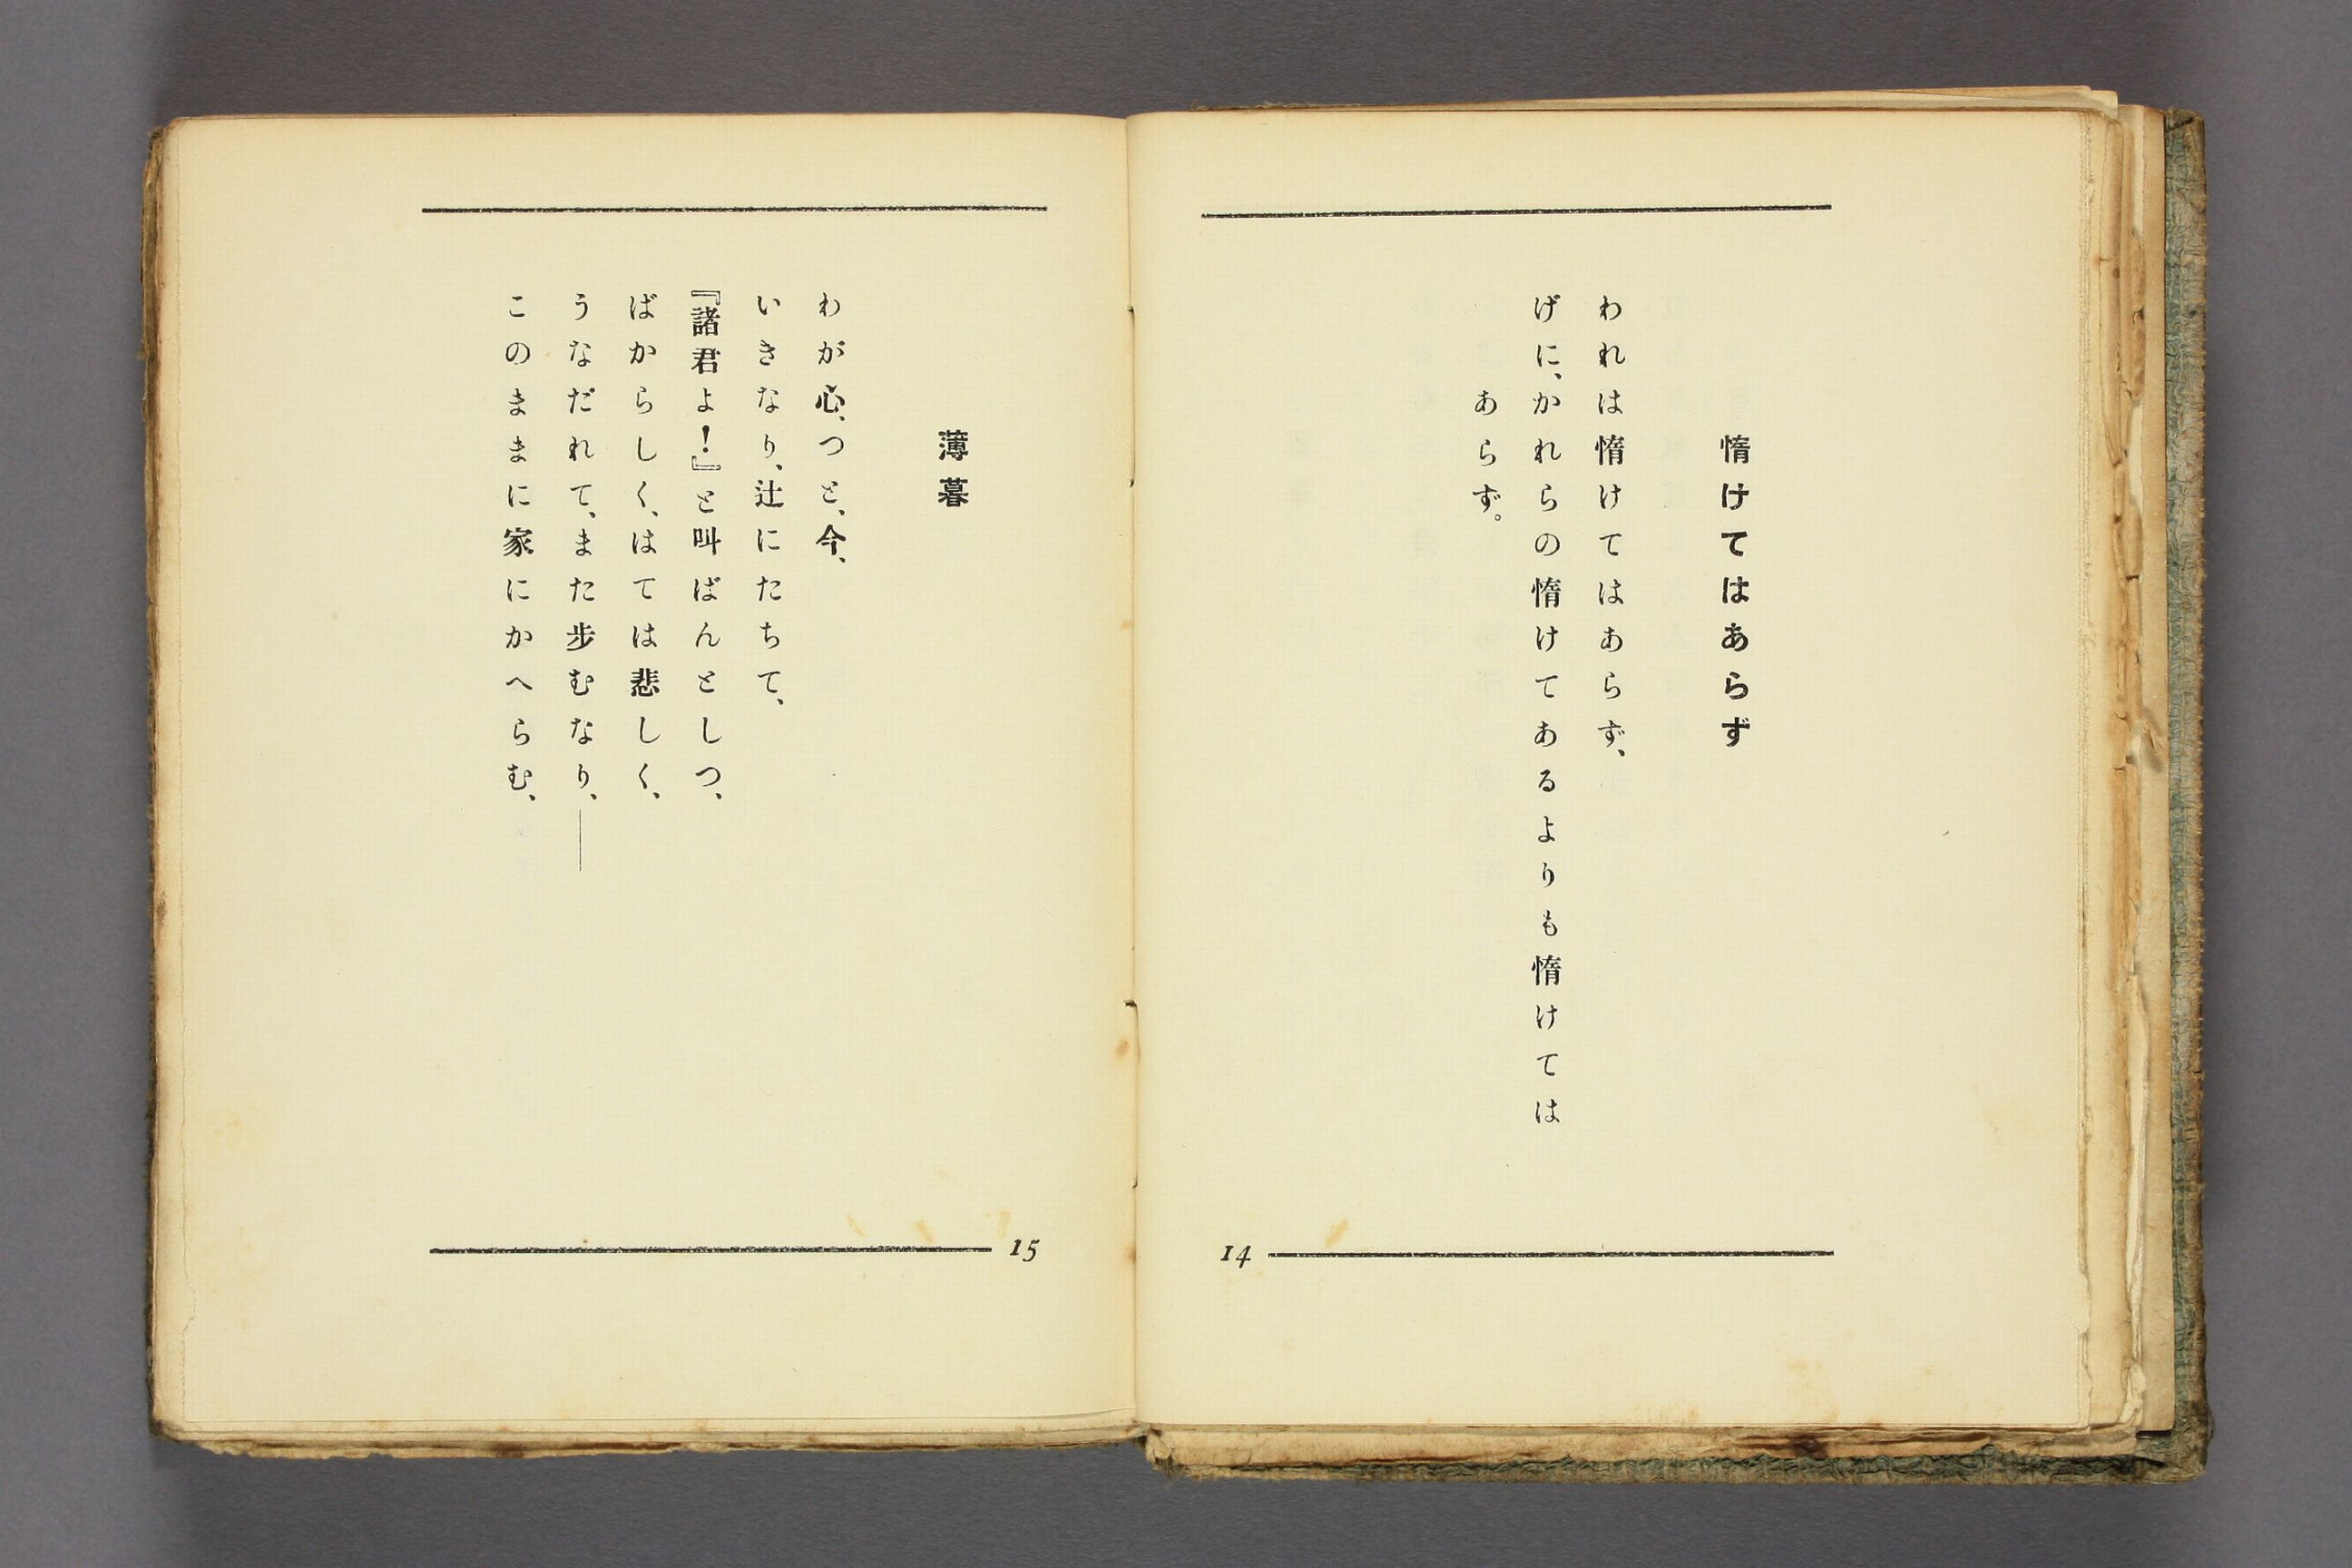 惰けてはあらず
われは惰けてはあらず、
げに、かれらの惰けてあるよりも惰けては
あらず。
14
薄暮
わが心、つと、今、
いきなり、辻にたちて、
『諸君よ！』と叫ばんとしつ、
ばからしく、はては悲しく、
うなだれて、また歩むなり、―
このままに家にかへらむ、
15